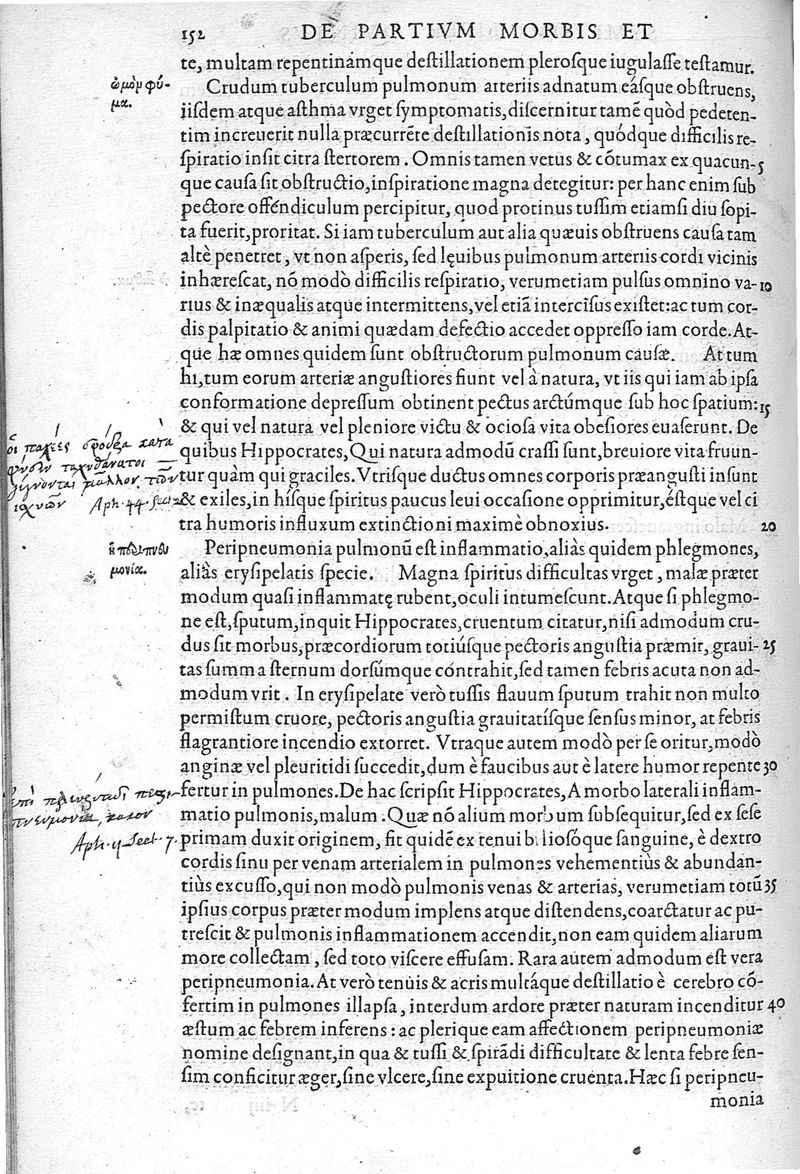 152 DE PARTIVM MORBIS ET
te, multam repentinámque destillationem plerosque iugulasse testamur.
ὠμὸν φῦ-
μα.
Crudum tuberculum pulmonum arteriis adnatum eásque obstruens,
iisdem atque asthma vrget symptomatis, discernitur tamē quòd pedeten-
tim increuerit nulla præcurrēte destillationis nota, quódque difficilis re-
spiratio insit citra stertorem. Omnis tamen vetus & cōtumax ex quacun- 5
que causa sit obstructio, inspiratione magna detegitur: per hanc enim sub
pectore offendiculum percipitur, quod protinus tussim etiamsi diu sopi-
ta fuerit, proritat. Si iam tuberculum aut alia quæuis obstruens causa tam
altè penetret, vt non asperis, sed lęuibus pulmonum arteriis cordi vicinis
inhærescat, nō modò difficilis respiratio, verumetiam pulsus omnino va- 10
rius & inæqualis atque intermittens, vel etiā intercisus existet: ac tum cor-
dis palpitatio & animi quædam defectio accedet oppresso iam corde. At-
que hæ omnes quidem sunt obstructorum pulmonum causæ. At tum
hi, tum eorum arteriæ angustiores fiunt vel à natura, vt iis qui iam ab ipsa
conformatione depressum obtinent pectus arctúmque sub hoc spatium: 15
& qui vel natura vel pleniore victu & ociosa vita obesiores euaserunt. De
οἱ παχέες σφόδρα κατὰ
φύσιν ταχυθάνατοι
γίγνονται μᾶλλον τῶν
ἰσχνῶν Aph. 44. Sect. 2
quibus Hippocrates, Qui natura admodū crassi sunt, breuiore vita fruun-
tur quàm qui graciles. Vtrisque ductus omnes corporis præangusti insunt
& exiles, in hisque spiritus paucus leui occasione opprimitur, éstque vel ci
tra humoris influxum extinctioni maximè obnoxius. 20
ἡ πεϱιπνου
μονία.
Peripneumonia pulmonū est inflammatio, aliàs quidem phlegmones,
aliàs erysipelatis specie. Magna spiritus difficultas vrget, malæ præter
modum quasi inflammatę rubent, oculi intumescunt. Atque si phlegmo-
ne est, sputum, inquit Hippocrates, cruentum citatur, nisi admodum cru-
dus sit morbus, præcordiorum totiúsque pectoris angustia præmit, graui- 25
tas summa sternum dorsúmque cóntrahit, sed tamen febris acuta non ad-
modum vrit. In erysipelate verò tussis flauum sputum trahit non multo
permistum cruore, pectoris angustia grauitatísque sensus minor, at febris
flagrantiore incendio extorret. Vtraque autem modò per se oritur, modò
anginæ vel pleuritidi succedit, dum è faucibus aut è latere humor repente 30
ἐπὶ πλευρίτιδι περι-
πνευμονία, κακόν
Aph. 11 Sect. 7.
fertur in pulmones. De hac scripsit Hippocrates, A morbo laterali inflam-
matio pulmonis, malum. Quæ nō alium morbum subsequitur, sed ex sese
primam duxit originem, fit quidē ex tenui biliosóque sanguine, è dextro
cordis sinu per venam arterialem in pulmones vehementiùs & abundan-
tiùs excusso, qui non modò pulmonis venas & arterias, verumetiam totū 35
ipsius corpus præter modum implens atque distendens, coarctatur ac pu-
trescit & pulmonis inflammationem accendit, non eam quidem aliarum
more collectam, sed toto viscere effusam. Rara autem admodum est vera
peripneumonia. At verò tenuis & acris multáque destillatio è cerebro cō-
fertim in pulmones illapsa, interdum ardore præter naturam incenditur 40
æstum ac febrem inferens: ac plerique eam affectionem peripneumoniæ
nomine designant, in qua & tussi & spirādi difficultate & lenta febre sen-
sim conficitur æger, sine vlcere, sine expuitione cruenta. Hæc si peripneu-
monia